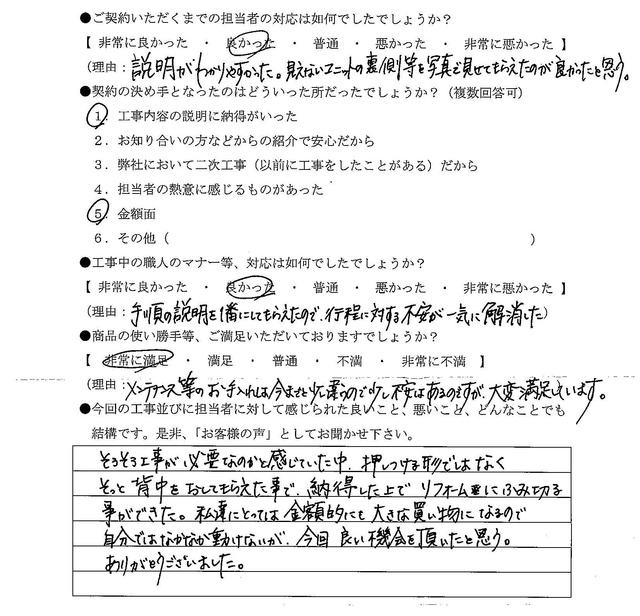 ●ご契約いただくまでの担当者の対応は如何でしたでしょうか？
【 非常に良かった ・ 良かった ・ 普通 ・ 悪かった ・ 非常に悪かった 】
（理由：説明がわかりやすかった。見えないユニットの裏側等を写真で見せてもらえたのが良かったと思う。
●契約の決め手となったのはどういった所だったでしょうか？（複数回答可）
1．工事内容の説明に納得がいった
2．お知り合いの方などからの紹介で安心だから
3．弊社において二次工事（以前に工事をしたことがある）だから
4．担当者の熱意に感じるものがあった
5．金額面
6．その他（ ）
●工事中の職人のマナー等、対応は如何でしたでしょうか？
【 非常に良かった ・ 良かった ・ 普通 ・ 悪かった ・ 非常に悪かった 】
（理由：手順の説明を1番にしてもらえたので、行程に対する不安が一気に解消した）
●商品の使い勝手等、ご満足いただいておりますでしょうか？
【 非常に満足 ・ 満足 ・ 普通 ・ 不満 ・ 非常に不満 】
（理由：メンテナンス等のお手入れは今までと少し違うので少し不安はあるのですが、大変満足しています。
●今回の工事並びに担当者に対して感じられた良いこと、悪いこと、どんなことでも
結構です。是非、「お客様の声」としてお聞かせ下さい。
そろそろ工事が必要なのかと感じていた中、押しつける形ではなく
そっと背中をおしてもらえた事で、納得した上でリフォームにふみ切る
事ができた。私達にとっては金額的にも大きな買い物になるので
自分ではなかなか動けないが、今回良い機会を頂いたと思う。
ありがとうございました。